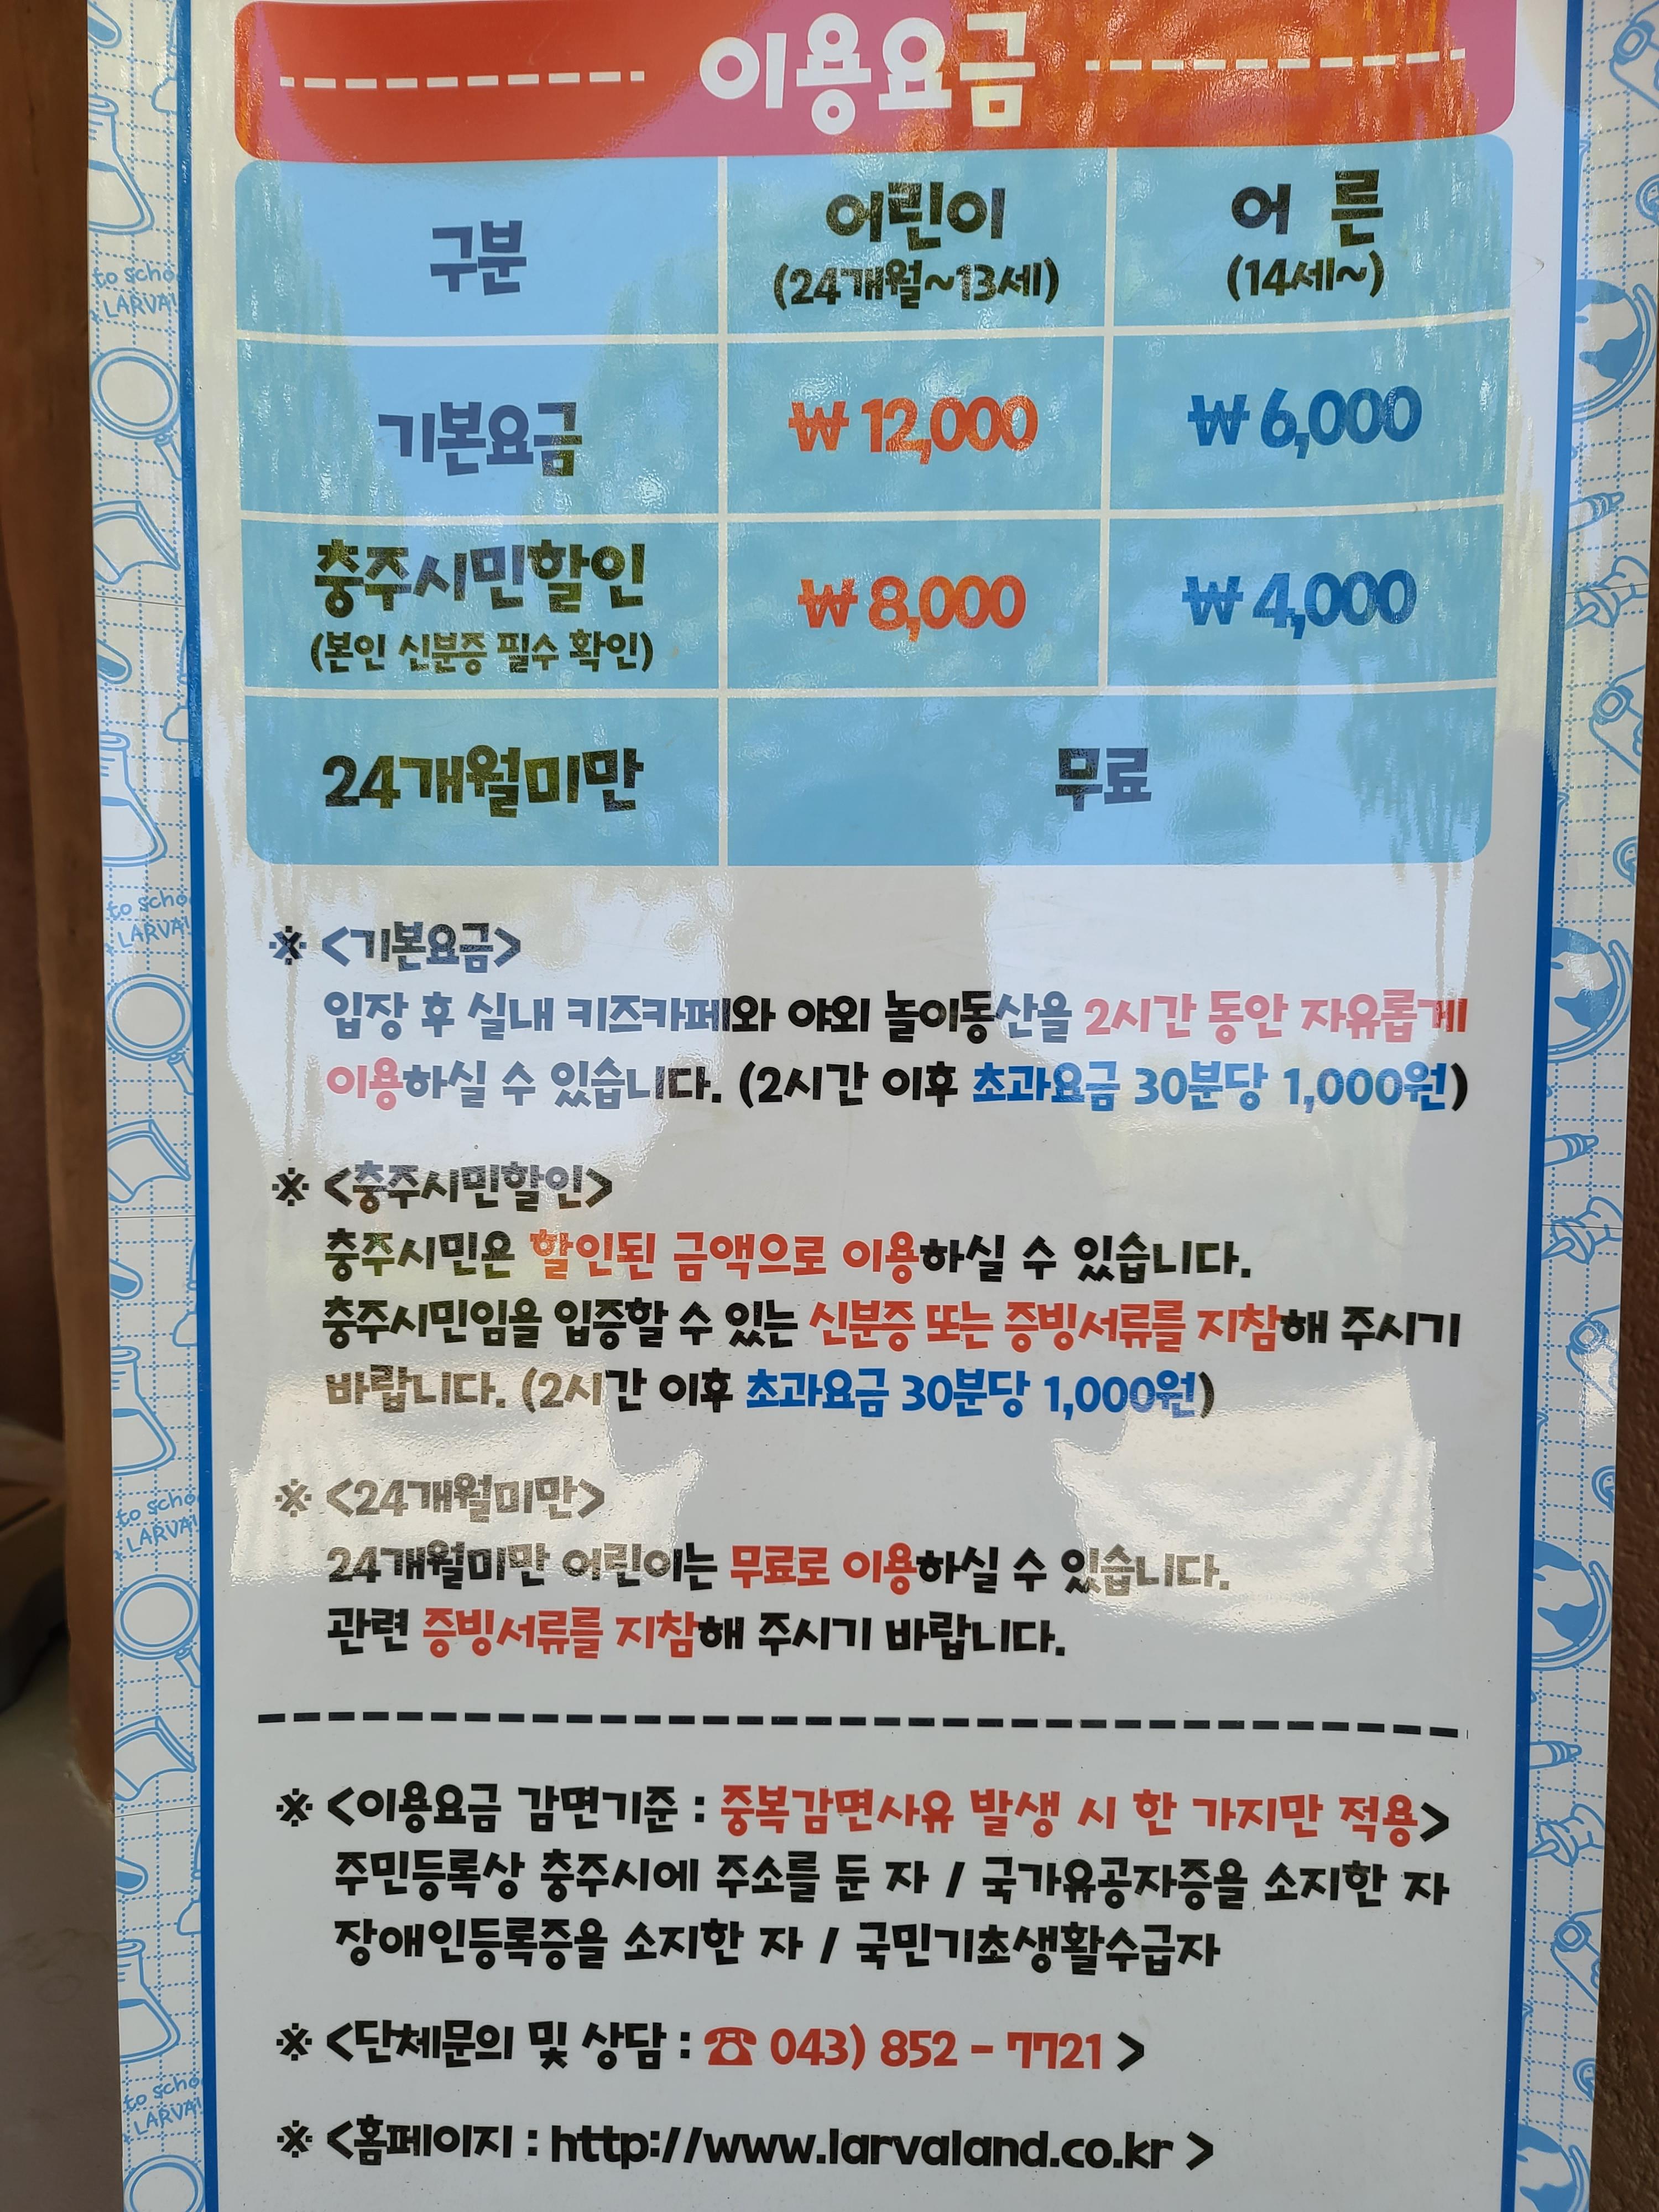 이용요금
구분 어린이 (24개월~13세) 어 른 (14세~)
기본요금 ₩12,000 ₩6,000
충주시민할인 ₩8,000 ₩4,000
(본인 신분증 필수 확인)
24개월미만 무료
※ <기본요금>
입장 후 실내 키즈카페와 야외 놀이동산을 2시간 동안 자유롭게
이용하실 수 있습니다. (2시간 이후 초과요금 30분당 1,000원)
※ <충주시민할인>
충주시민은 할인된 금액으로 이용하실 수 있습니다.
충주시민임을 입증할 수 있는 신분증 또는 증빙서류를 지참해 주시기
바랍니다. (2시간 이후 초과요금 30분당 1,000원)
※ <24개월미만>
24개월미만 어린이는 무료로 이용하실 수 있습니다.
관련 증빙서류를 지참해 주시기 바랍니다.
※ <이용요금 감면기준 : 중복감면사유 발생 시 한 가지만 적용>
주민등록상 충주시에 주소를 둔 자 / 국가유공자증을 소지한 자
장애인등록증을 소지한 자 / 국민기초생활수급자
※ <단체문의 및 상담 : ☎ 043) 852 - 7721 >
※ <홈페이지 : http://www.larvaland.co.kr >
to scho
LARVA
to scho
LARVA
to scho
LARVA
to scho
LARVA